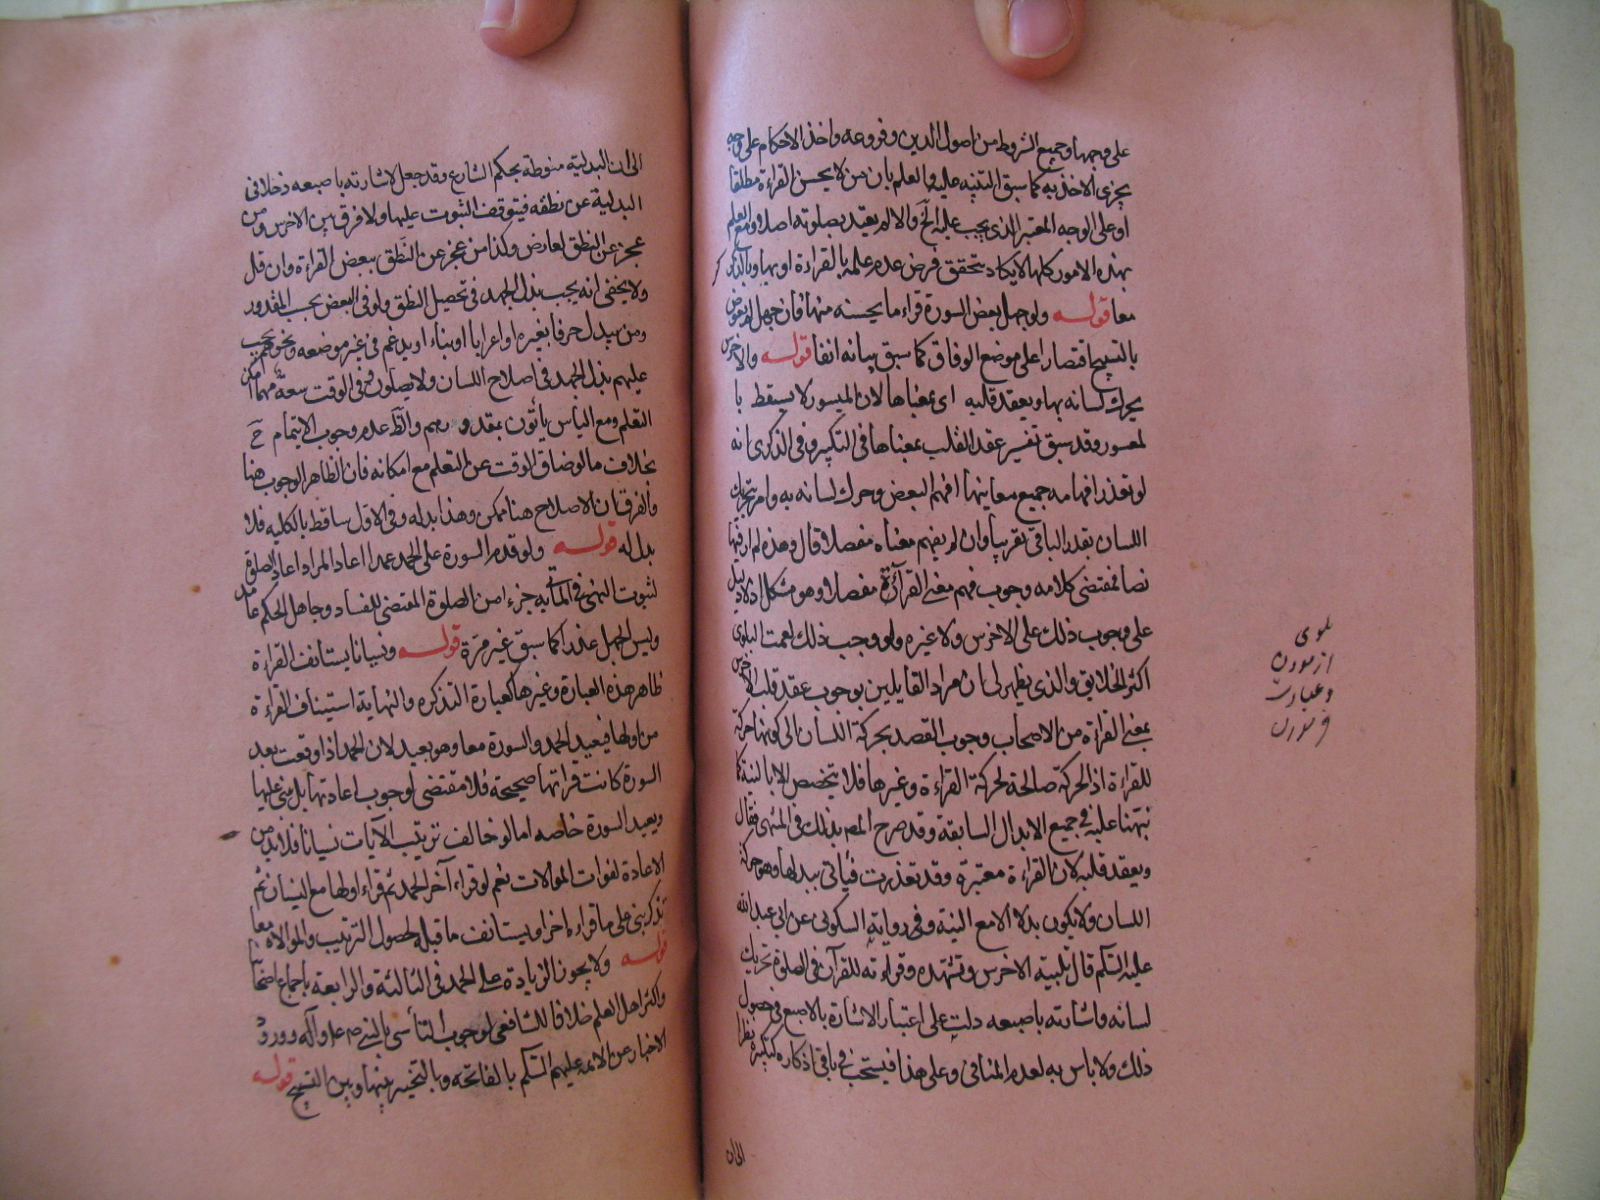 على وجهها وجميع الشروط من اصول الدين وفروعه واخذ الاحكام على وجه
يجزى الاخذ به كما سبق التنبيه عليه والعلم بان من لا يحسن القراءة مطلقا
او على الوجه المعتبر الذى يجب عليه الخ والا لم يعتد بصلوته اصلا ومع العلم
بهذه الامور كلها لا يكاد يتحقق فرض عدم علمه بالقراءة او بها وبالذكر
معا قوله ولو جهل بعض السورة قراء ما يحسنه منها فان جهل لم يعوض
بالتسبيح اقتصارا على موضع الوفاق كما سبق بيانه انفا قوله والاخرس
يحرك لسانه بها ويعقد قلبه اى بمعناها لان الميسور لا يسقط با
لمعسور وقد سبق تفسير عقد القلب بمعناها فى التكبير وفى الذكرى انه
لو تعذر افهامه جميع معاينها افهم البعض وحرك لسانه به وامر بتحريك
اللسان بقدر الباقى تقريبا وان لم يفهم معناه مفصلا قال وهذه لم ار فيها
نصا فمقتضى كلامه وجوب فهم معنى القراءة مفصلا وهو مشكل اذ لا دليل
على وجوب ذلك على الاخرس ولا غيره ولو وجب ذلك لعمت البلوى
اكثر الخلايق والذى يظهر لى ان مراد القايلين بوجوب عقد قلب الاخرس
بمعنى القراءة من الاصحاب وجوب القصد بحركة اللسان الى كونها حركة
للقراءة اذ الحركة صالحة لحركة القراءة وغيرها فلا يتخصص الا بالنية كما
نبهنا عليه فى جميع الابدال السابقة وقد صرح المص بذلك فى المنتهى فقال
ويعقد قلبه لان القراءة معتبرة وقد تعذرت فيأتى ببدلها وهو حركة
اللسان ولا يكون بدلا الا مع النية وفى رواية السكونى عن ابى عبد الله
عليه السلم قال تلبية الاخرس وتشهده وقراءته للقرآن فى الصلوة تحريك
لسانه واشارته باصبعه دلت على اعتبار الاشارة بالاصبع فى حصول
ذلك ولا باس به لعدم المنافى وعلى هذا فيستحب فى باقى اذكاره كتكبيره نظرا
الى ان
بلوى
ازمودن
الى ان البدلية منوطة بحكم الشارع وقد جعل لاشارته باصبعه دخلا فى
البدلية عن نطقه فيتوقف الثبوت عليها ولا فرق بين الاخرس ومن
عجز عن النطق لعارض وكذا من عجز عن النطق ببعض القراءة وان قل
ولا يخفى انه يجب بذل الجهد فى تحصيل النطق ولو فى البعض بحسب المقدور
ومن يبدل حرفا بغيره او اعرابا او بناء او يدغم فى غير موضعه ونحوهم يجب
عليهم بذل الجهد فى اصلاح اللسان ولا يصلون وفى الوقت سعة مهما امكن
التعلم ومع الياس يأتون بمقدورهم والظ عدم وجوب الايتمام ح
بخلاف ما لو ضاق الوقت عن التعلم مع امكانه فان الظاهر الوجوب هنا
والفرق ان الاصلاح هنا ممكن وهذا بدله وفى الاول ساقط بالكليه فلا
بدل له قوله ولو قدم السورة على الحمد عمدا اعاد المراد اعاد الصلوة
لثبوت النهى فى المأتى به جزءا من الصلوة المقتضى للفساد وجاهل الحكم عامد
وليس الجهل عذرا كما سبق غير مرة قوله ونسيانا يستانف القراءة
ظاهر هذه العبارة وغيرها كعبارة التذكره والنهاية استيناف القراءة
من اولها فيعيد الحمد والسورة معا وهو بعيد لان الحمد اذا وقعت بعد
السورة كانت قراتها صحيحة فلا مقتضى لوجوب اعادتها بل يبنى عليها
ويعيد السورة خاصه اما لو خالف ترتيب الآيات نسيانا فلا بد من
الاعادة لفوات الموالات نعم لو قراء آخر الحمد ثم قراء اولها مع النسيان ثم
تذكر بنى على ما قراءه اخرا ويستانف ما قبله لحصول الترتيب والموالاة معا
قوله ولا يجوز الزيادة على الحمد فى الثالثة والرابعة باجماع اصحابنا
واكثر اهل العلم خلافا للشافعى لوجوب التأسى بالنبى صلى عليه وآله وورود
الاخبار عن الائمه عليهم السلم بالفاتحه وبالتخيير بينها وبين التسبيح قوله